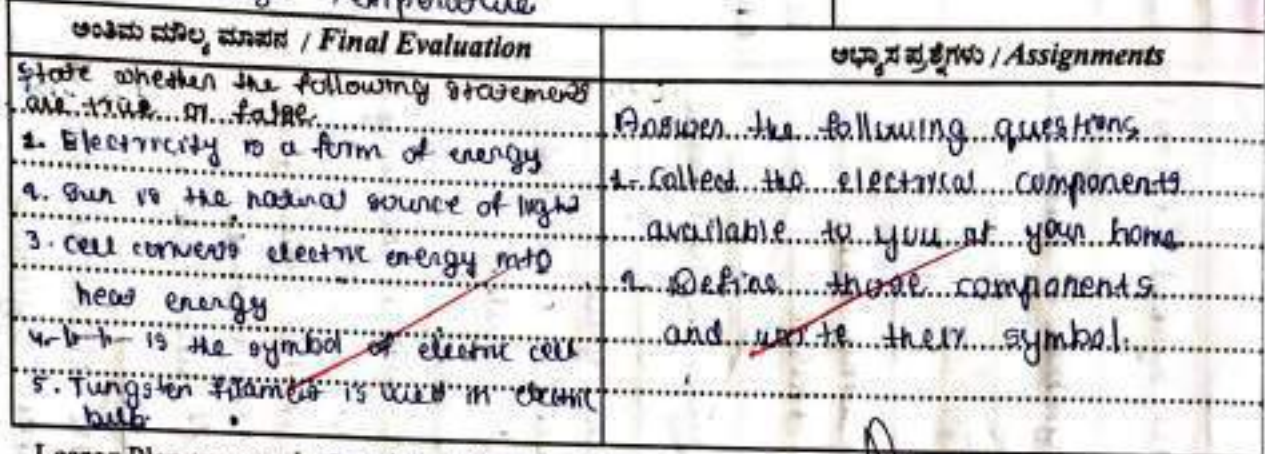 ಅಂತಿಮ ಮೌಲ್ಯ ಮಾಪನ / Final Evaluation
State whether the following statements
are true or false
1. Electricity is a form of energy
2. Sun is the natural source of light
3. Cell converts electric energy into
heat energy
4. is the symbol of electric cell
5. Tungsten filament is used in electric
bulb.
ಅಭ್ಯಾಸ ಪ್ರಶ್ನೆಗಳು / Assignments
Answer the following questions
1. Collect the electrical components
available to you at your home
2. Define those components
and write their symbol.